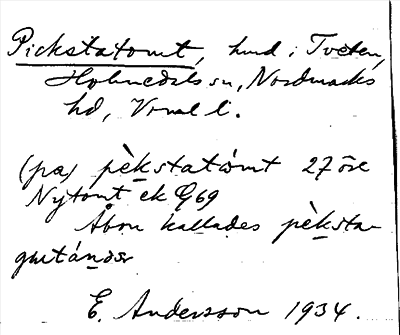 Pickstatomt, hmd i Tveten,
Holmedals sn, Nordmarks
hd, Vrml l.
(på) pèkstatòmt 27 öre
Nytomt ek Q69
Åbon kallades pèksta-
gutánər
E. Andersson 1934.